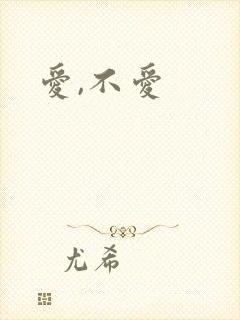 愛,不愛
尤希